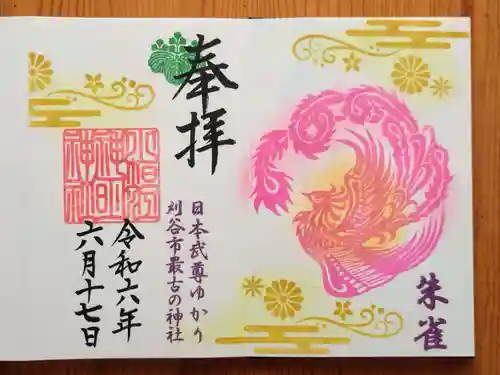 奉拝
日本武尊ゆかり
刈谷市最古の神社
令和六年
六月十七日
朱雀